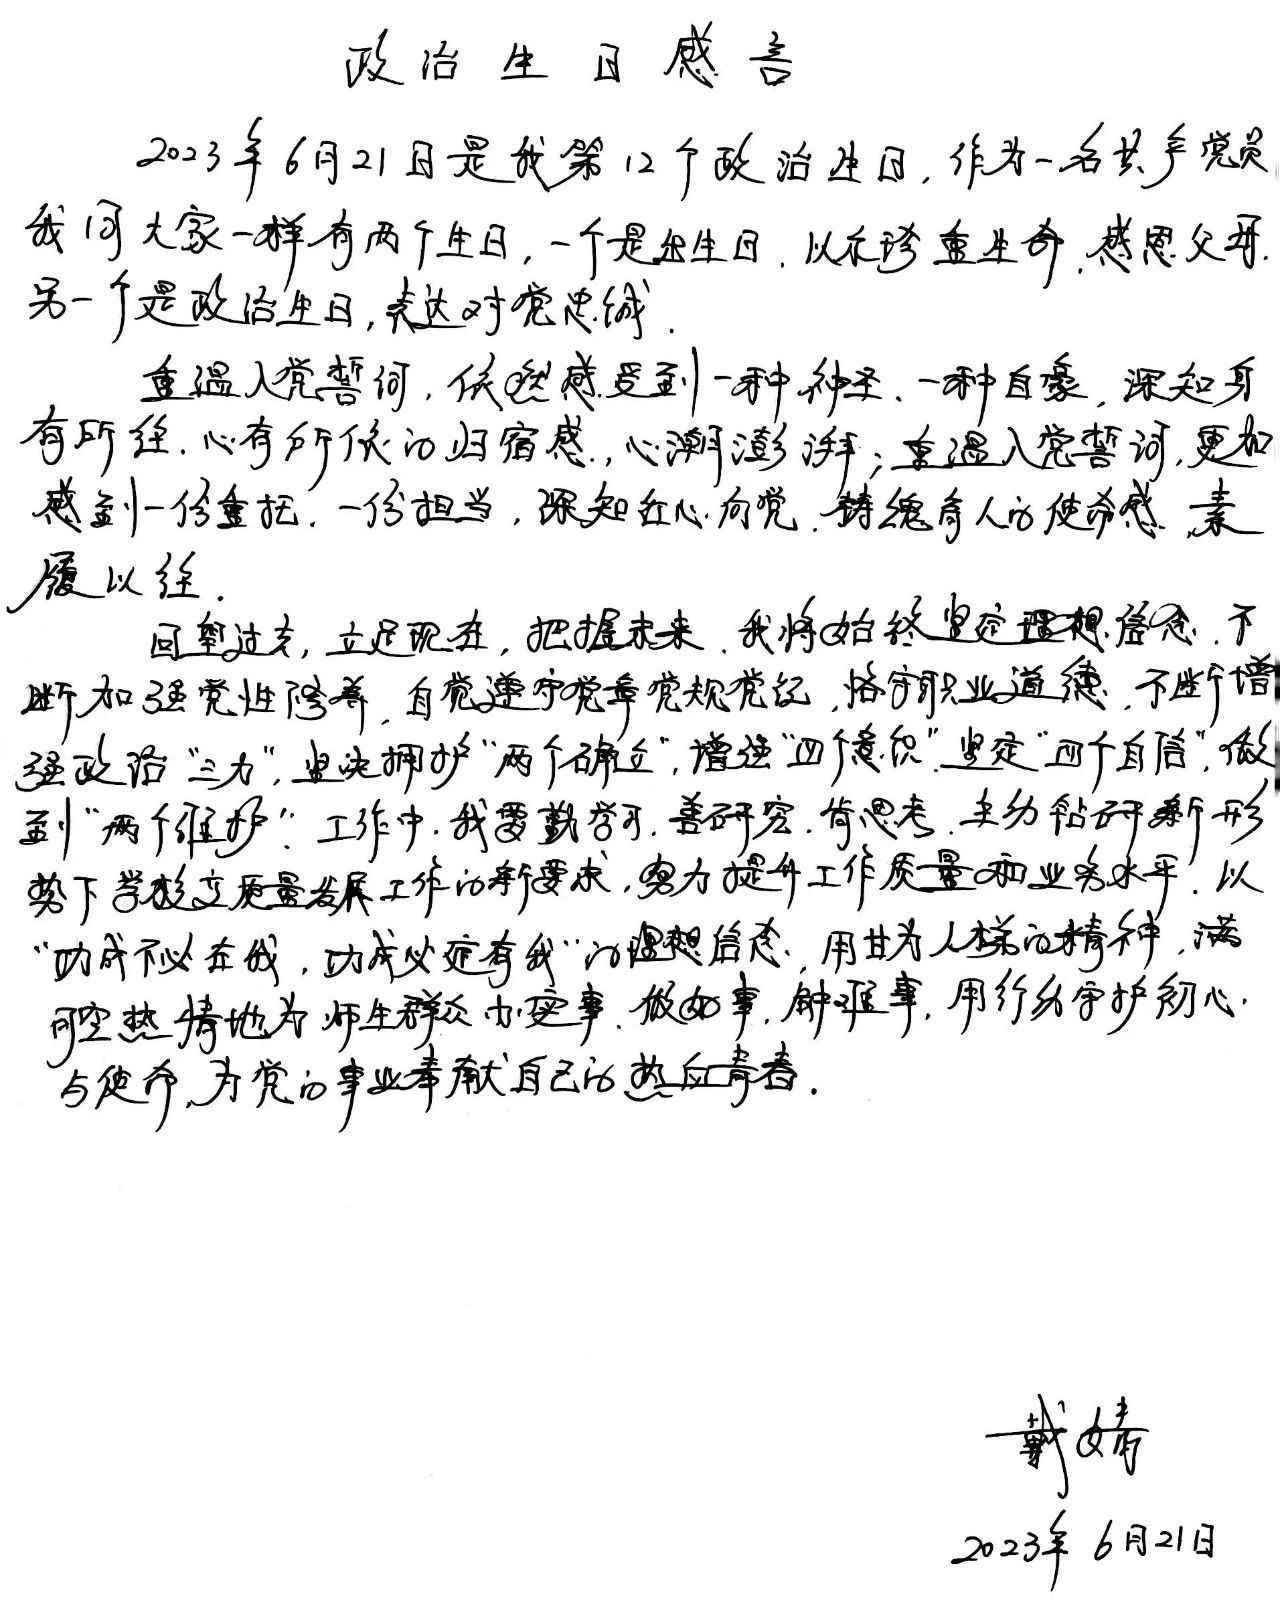 政治生日感言
2023年6月21日是我第12个政治生日,作为一名共产党员
我同大家一样有两个生日,一个是出生日,以示珍重生命,感恩父母.
另一个是政治生日,表达对党忠诚.
重温入党誓词,依然感受到一种神圣、一种自豪,深知身
有所往、心有所依的归宿感,心潮澎湃;重温入党誓词,更加
感到一份重托、一份担当,深知红心向党、铸魂育人的使命感,素
履以往.
回望过去,立足现在,把握未来,我将始终坚定理想信念,不
断加强党性修养,自觉遵守党章党规党纪,恪守职业道德,不断增
强政治“三力”,坚决拥护“两个确立”,增强“四个意识”,坚定“四个自信”,做
到“两个维护”.工作中,我要勤学习,善研究,肯思考,主动钻研新形
势下学校高质量发展工作的新要求,努力提升工作质量和业务水平.以
“功成不必在我,功成必定有我”的理想信念,用甘为人梯的精神,满
腔热情地为师生群众办实事、做好事、解难事,用行动守护初心
与使命,为党的事业奉献自己的热血青春.
戴婧
2023年6月21日